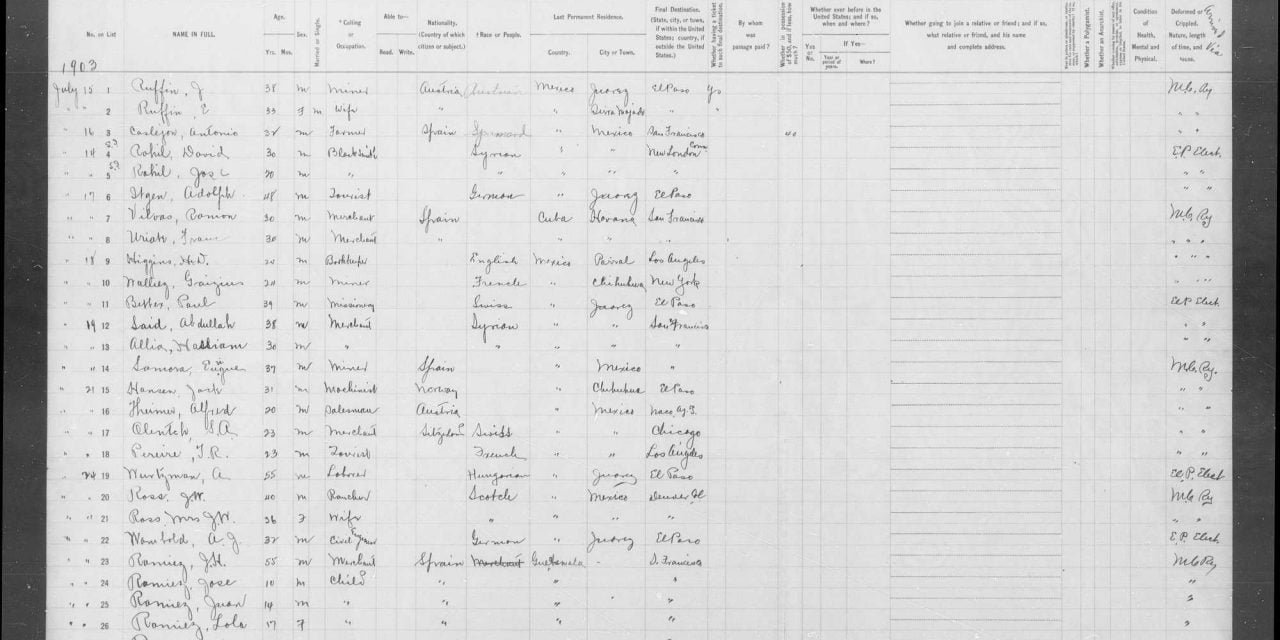 No. on List NAME IN FULL. Age. Yrs. Mos. Sex. Married or Single. *Calling or Occupation. Able to— Read. Write. Nationality. (Country of which citizen or subject.) †Race or People. Last Permanent Residence. Country. City or Town. Final Destination. (State, city, or town, if within the United States; country, if outside the United States.) Whether having a ticket to such final destination. By whom was passage paid? Whether in possession of $50, and if less, how much? Whether ever before in the United States; and if so, when and where? Yes or No. If Yes— Year or period of years. Where? Whether going to join a relative or friend; and if so, what relative or friend, and his name and complete address. Whether a Polygamist. Whether an Anarchist. Condition of Health, Mental and Physical. Deformed or Crippled. Nature, length of time, and cause. Via
1903
July 15 1 Ruffin, J 38 m Miner Austria Austrian Mexico Juarez El Paso Ys M.C. Ry
" " 2 Ruffin, E 33 F m Wife " Sierra Mojada " " "
" 16 3 Caslejon, Antonio 32 m Farmer Spain Spaniard " Mexico San Francisco 40 " "
" 14 4 Rohil, David 30 m Blacksmith Syrian " " New London Conn E.P. Elect.
" " 5 Rohil, Jose 20 m " " " " " " "
" 17 6 Itgen, Adolph 48 m Tourist German " Juarez El Paso " "
" " 7 Vilvas, Ramon 30 m Merchant Spain Cuba Havana San Francisco M.C. Ry
" " 8 Uriah, 30 m Merchant " " " " " " "
" 18 9 Higgins, H.D. m Bookkeeper English Mexico Parral Los Angeles " " "
" " 10 24 m Miner French " Chihuhua New York " " "
" " 11 Better, Paul 39 m Missionary Swiss " Juarez El Paso El P Elect.
" 19 12 Said, Abdullah 38 m Merchant Syrian " " San Francis " "
" " 13 Allia, Hassiam 30 m " " " " " " "
" " 14 Samora, 37 m Miner Spain " Mexico " M.C. Ry.
" 21 15 Hansen, Jack 31 m Machinist Norway " Chihuhua El Paso " "
" " 16 Theimer, Alfred 20 m Salesman Austria " Mexico Naco, Az T. " "
" " 17 Olentch, S.A. 23 m Merchant Swiss " " Chicago " "
" " 18 Pereire, T.R. 23 m Tourist French " " Los Angeles "
" 24 19 Wurtzman, A 55 m Labrer Hungarian " Juarez El Paso El. P. Elect
" " 20 Ross, J.W. 40 m Rancher Scotch " Mexico Denver Col M.C. Ry
" " 21 Ross, Mrs J.W. 36 F Wife " " " " " "
" " 22 Wambold, A. J. 32 m Civil Engineer German " Juarez El Paso E.P. Elect.
" " 23 Ramiez, J.H. 55 m Merchant Spain Merchant Guatemala - S. Francisco M.C. Ry
" " 24 Ramiez, Jose 10 m Child " " " "
" " 25 Ramiez, Juan 14 m " " " " "
" " 26 Ramiez, Lola 17 F " " " " "